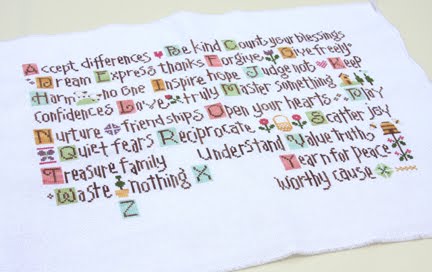 Accept differences Be kind Count your blessings
Dream Express thanks Forgive Give freely
Harm no one Inspire hope Judge not Keep
confidences Love truly Master something
Nurture friendships Open your hearts Play
Quiet fears Reciprocate Scatter joy
Treasure family Understand Value truth
Waste nothing X Yearn for peace
Z worthy cause